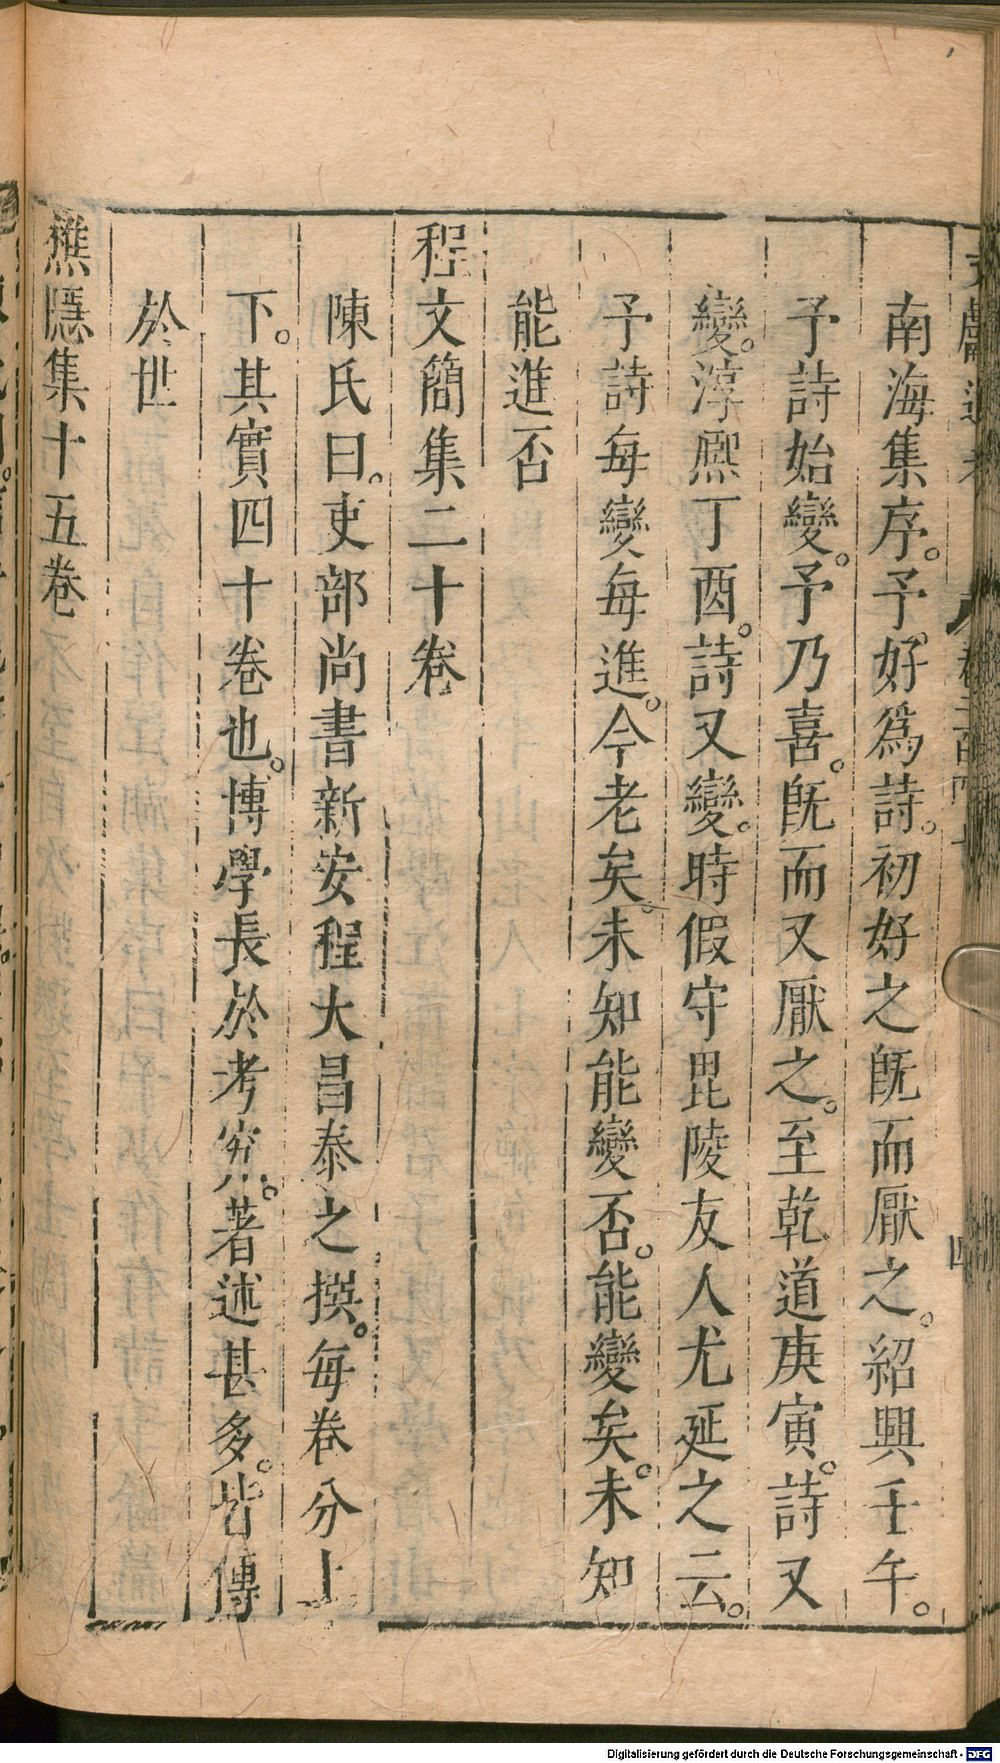 南海集序。予好爲詩。初好之旣而厭之。紹興壬午。
予詩始變。予乃喜。旣而又厭之。至乾道庚寅。詩又
變。淳熙丁酉。詩又變。時假守毘陵友人尤延之云。
予詩每變每進。今老矣。未知能變否。能變矣。未知
能進否
程文簡集二十卷
陳氏曰。吏部尚書新安程大昌泰之撰。每卷分上
下。其實四十卷也。博學長於考究。著述甚多。皆傳
於世
樵隱集十五卷
Digitalisierung gefördert durch die Deutsche Forschungsgemeinschaft - DFG